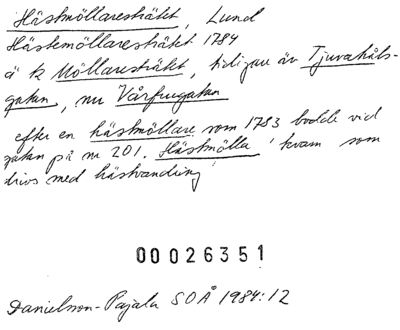 Hästmöllarestråket, Lund
Hästemöllarestråket 1784
ä k Möllarestråket, tidigare äv Tjuvahåls-
gatan, nu Vårfrugatan
efter en hästmöllare som 1783 bodde vid
gatan på nr 201. Hästmölla 'kvarn som
drivs med hästvandring'
00026351
Danielson-Pajala SOÅ 1984:12